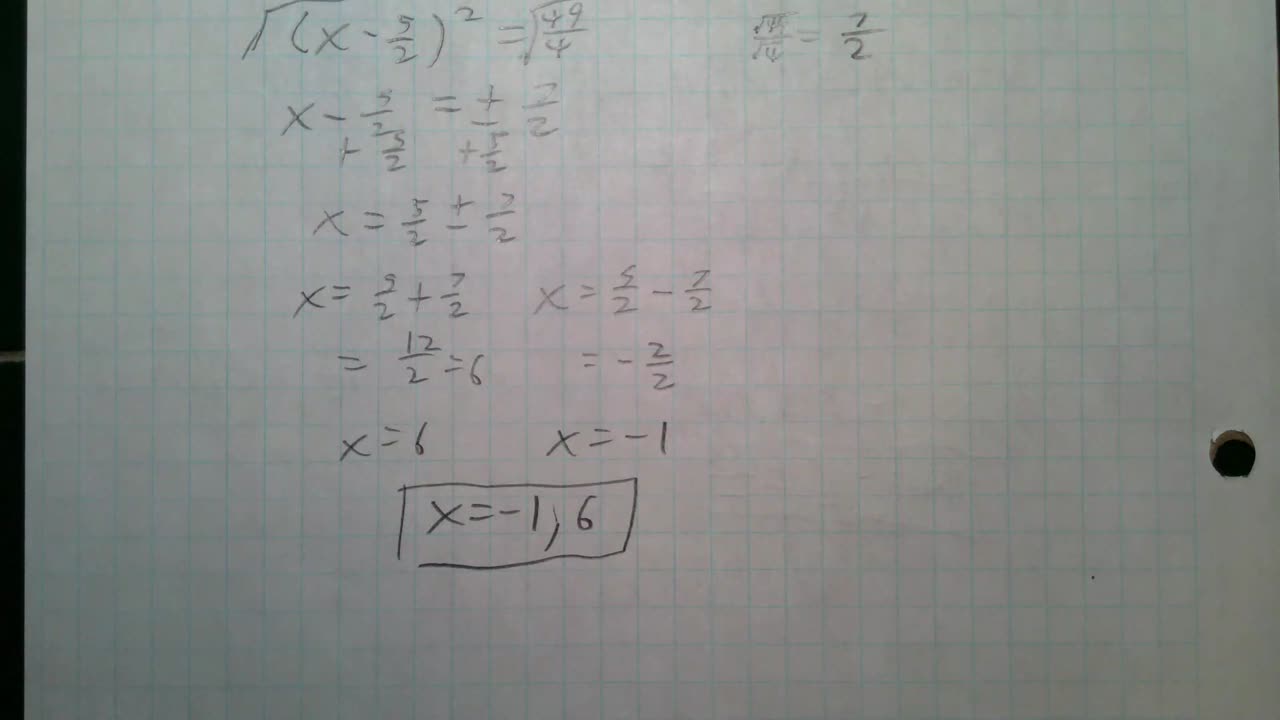 √(x - 5/2)² = √49/4 √49/√4 = 7/2
x - 5/2 = ± 7/2
+ 5/2 + 5/2
x = 5/2 ± 7/2
x = 5/2 + 7/2 x = 5/2 - 7/2
= 12/2 = 6 = - 2/2
x = 6 x = -1
x = -1, 6